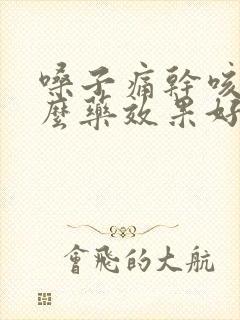 嗓子痛幹咳
麼藥效果好
會飛的大航